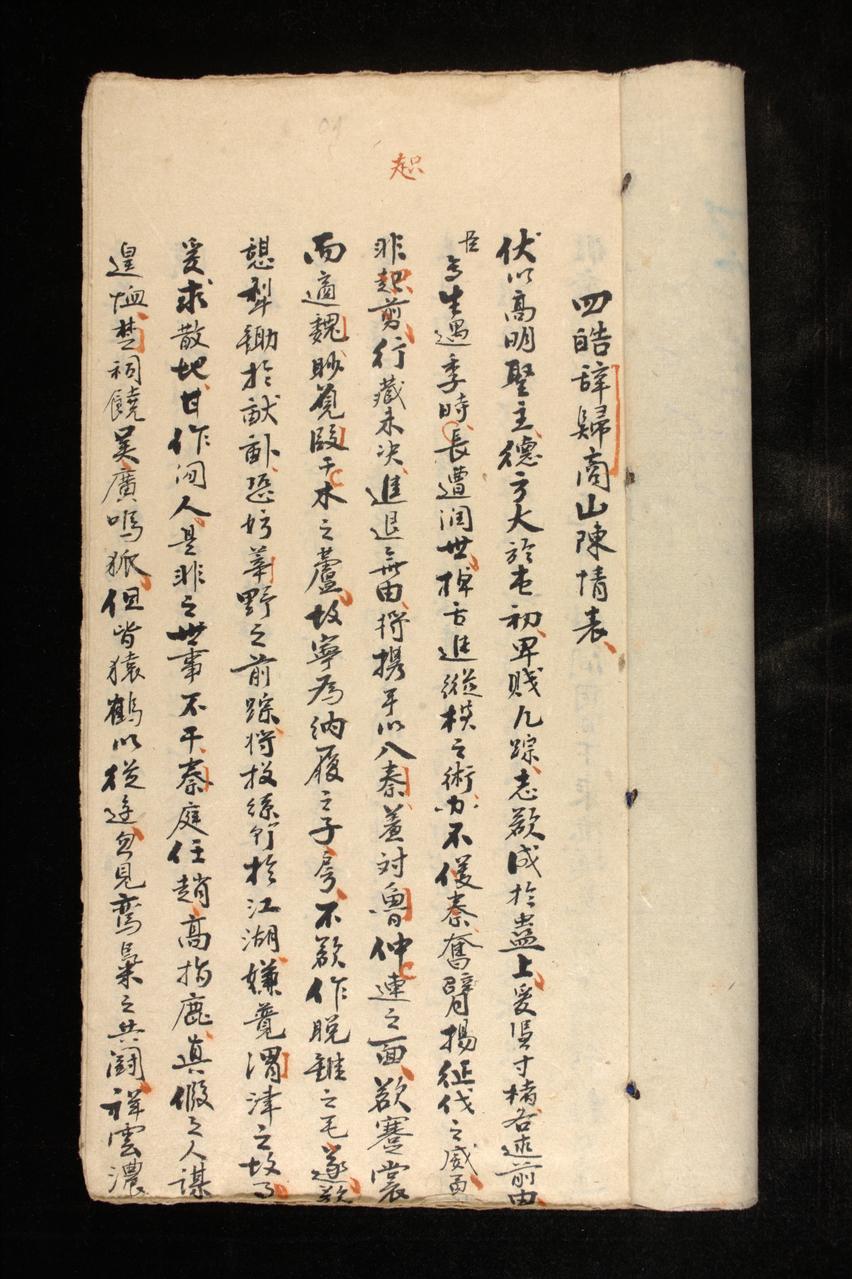 起
四皓辞歸商山陳情表
伏以高明聖主德方大於屯初卑賤凡踪志欲成於蠱上爰憑寸楮各述前由
臣等生遇季時長遭潤世掉舌進縱横之術力不僾秦奮臂揚征伐之威面
非起剪行藏未决進退無由將携手以入秦羞対魯仲連之面欲蹇裳
而適魏眇覓段干木之蘆故寧為納履之子房不欲作脱錐之毛遂欲
憇犁鋤扵畎畝恐妨莘野之前踪將投絲竹於江湖嫌覔渭津之故事
爰求散地甘作间人是非之世事不干秦庭任趙高指鹿真假之人謀
遑恤楚祠饒吴廣鳴狐但皆猿鶴以從遊忽見鸞𣱛之共鬪祥雲濃